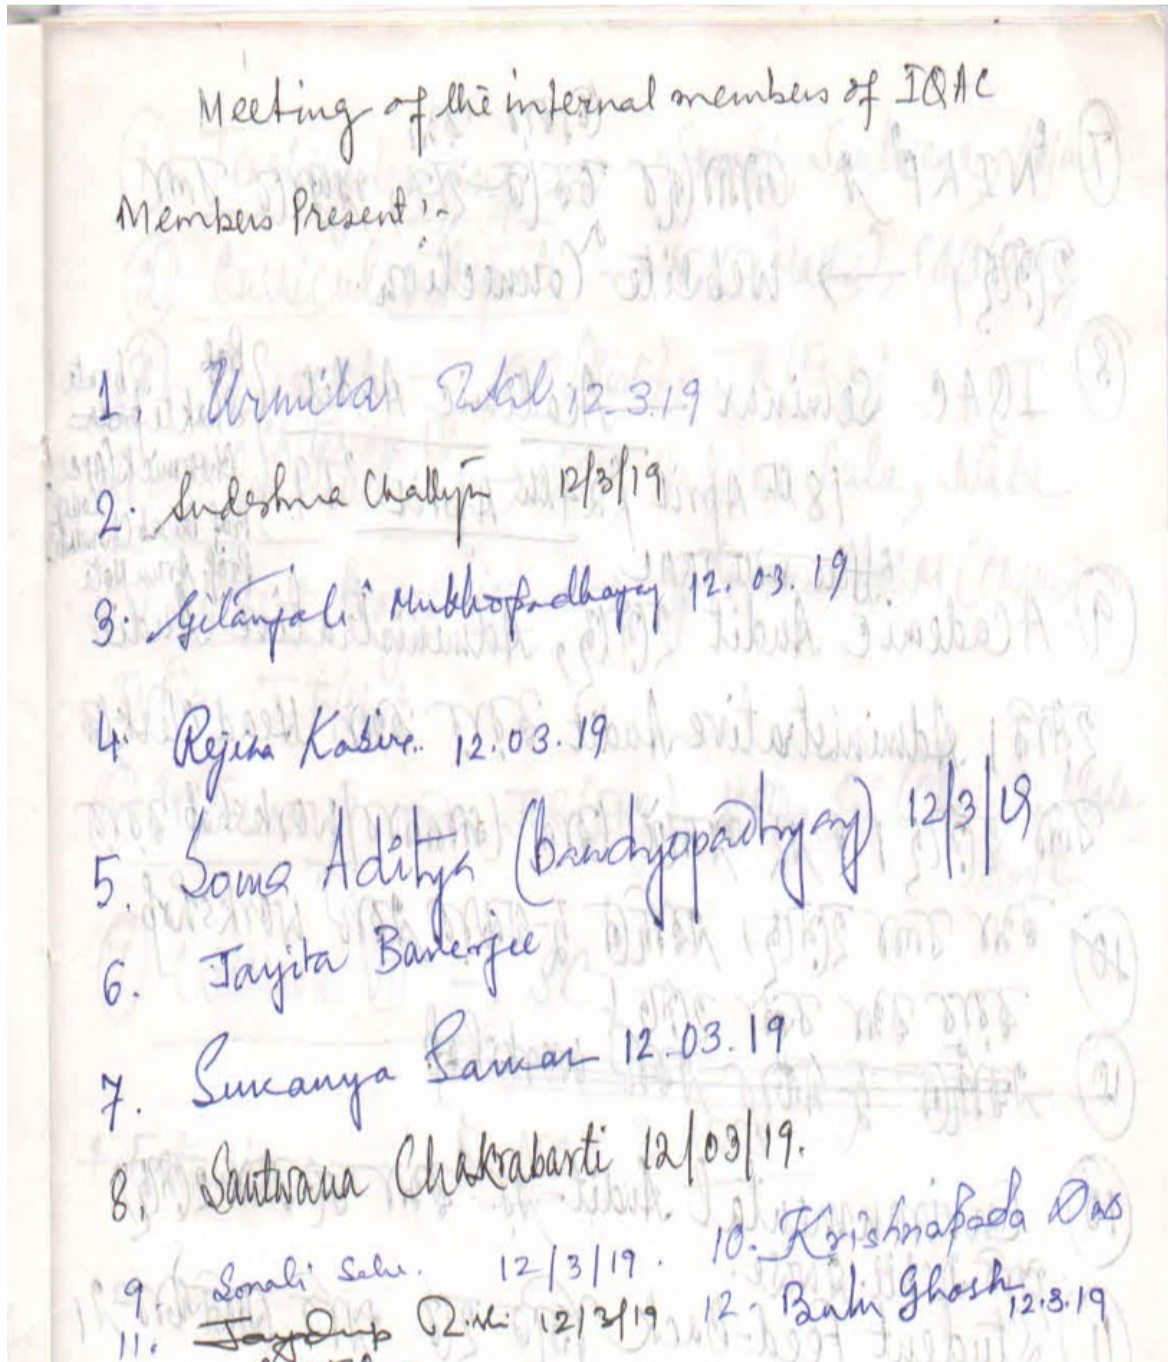 Meeting of the internal members of IQAC
Members Present :-
1. Urmila 12.3.19
2. Sudeshna 12/3/19
3. Gitanjali Mukhopadhyay 12.03.19
4. Rejina Kabir. 12.03.19
5. Soma Aditya (bandyopadhyay) 12/3/19
6. Jayita Banerjee
7. Sukanya Sarkar 12.03.19
8. Santwana Chakrabarti 12/03/19.
9. Sonali Saha. 12/3/19. 10. Krishnapada Das
11. Joydip 12/3/19 12. Ghosh 12.3.19